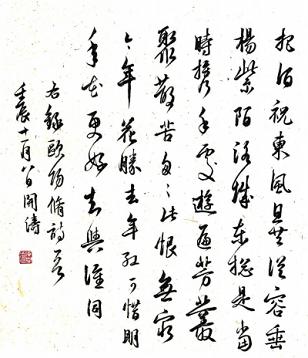 把酒祝東風且共從容垂
楊紫陌洛城東總是當
時攜手處遊遍芳叢
聚散苦匆々此恨無窮
今年花勝去年紅可惜明
年花更好知與誰同
右錄歐陽脩
壬辰十月八日開濤